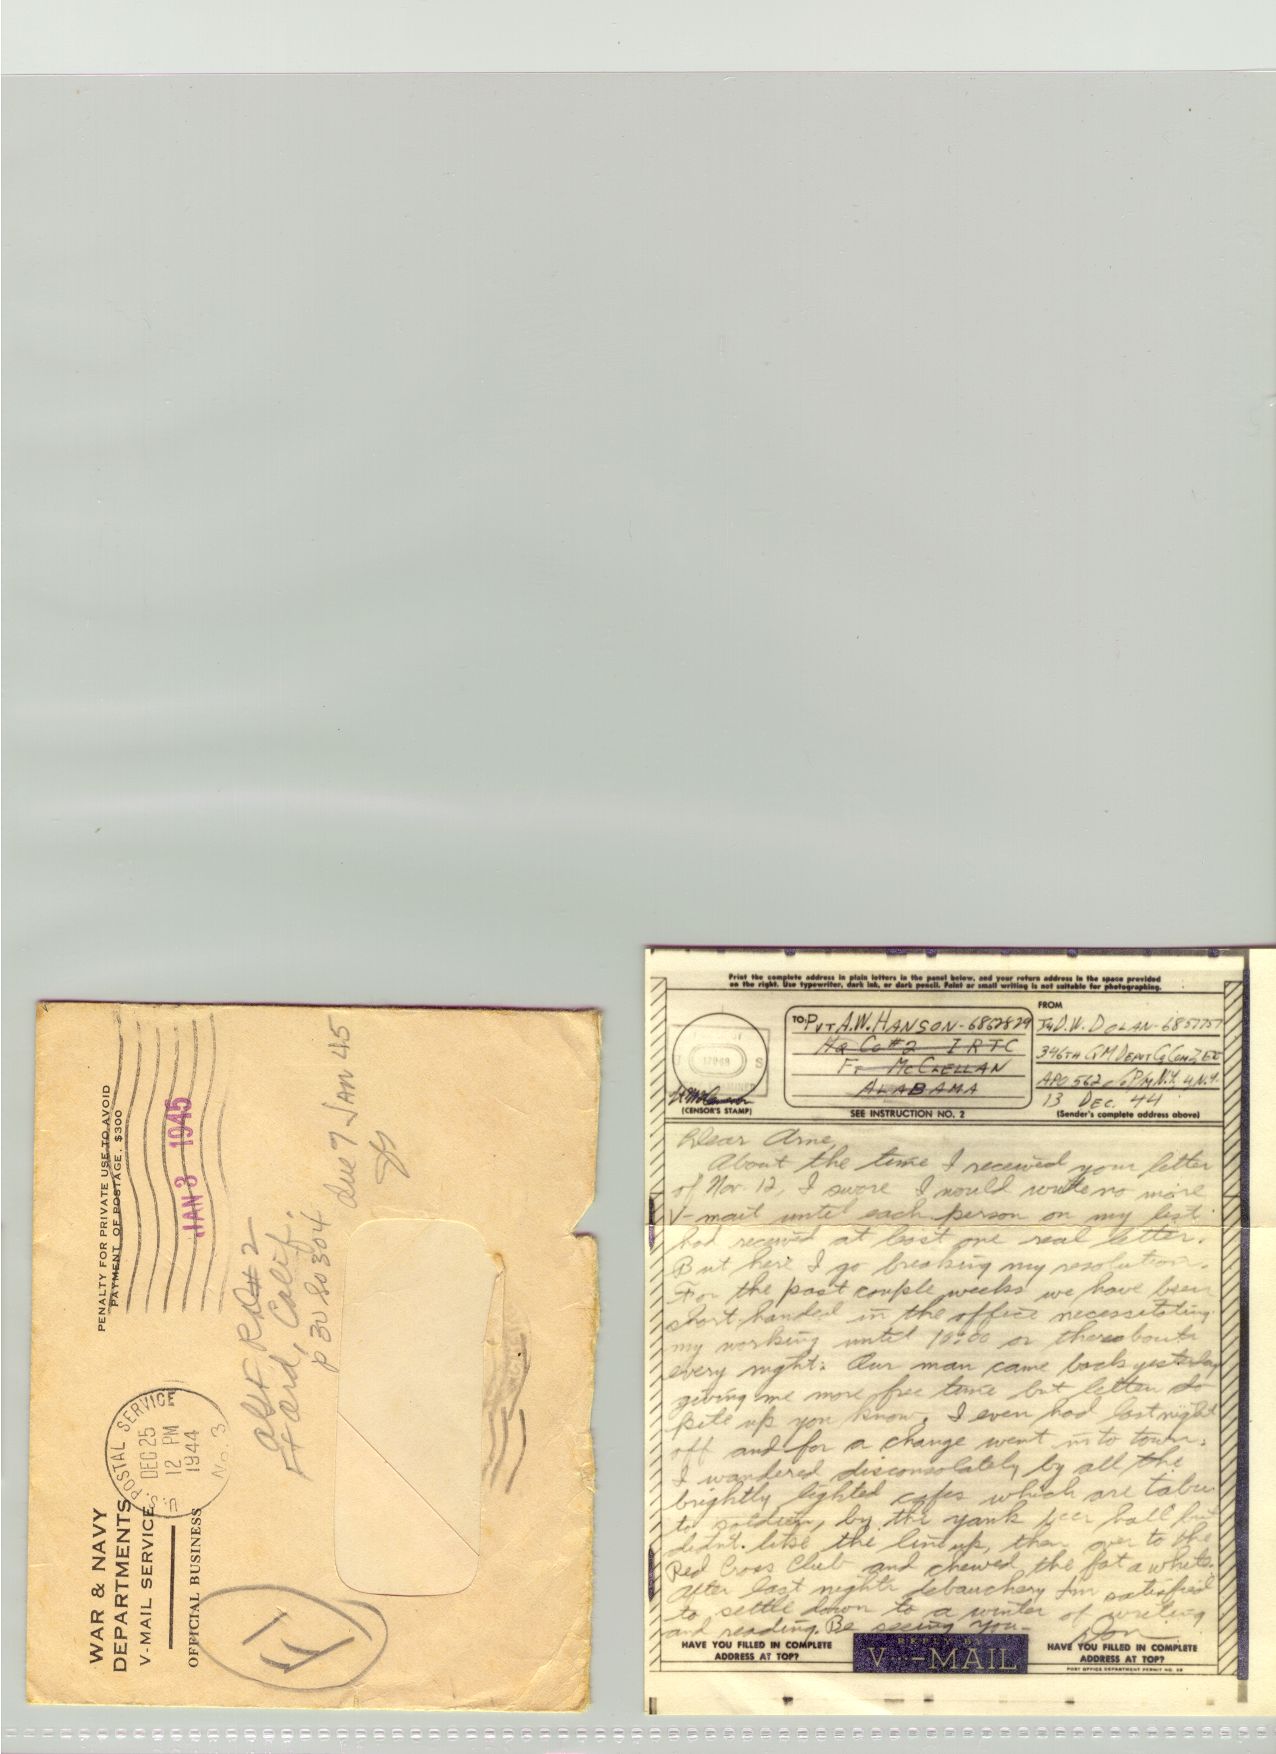 WAR & NAVY
DEPARTMENTS
V-MAIL SERVICE
OFFICIAL BUSINESS
PENALTY FOR PRIVATE USE TO AVOID
PAYMENT OF POSTAGE, $300
POSTAL SERVICE
DEC 25
12 PM
1944
No. 3
JAN 3 1945
ASF R #2
Ord, Calif.
304
due 7 JAN 45
Print the complete address in plain letters in the panel below, and your return address in the space provided
on the right. Use typewriter, dark ink, or dark pencil. Faint or small writing is not suitable for photographing.
(CENSOR'S STAMP)
TO: PVT A.W. HANSON-6862829
HQ CO #2 IRTC
FT McCLELLAN
ALABAMA
SEE INSTRUCTION NO. 2
FROM
D.W. DOLAN-6857751
346TH QM DEPOT CO COM Z
APO 562 P/M, N.Y. N.Y.
13 DEC. 44
(Sender's complete address above)
Dear Arne,
About the time I received your letter
of Nov. 12, I swore I would write no more
V-mail until each person on my list
had received at least one real letter.
But here I go breaking my resolution.
For the past couple weeks we have been
short handed in the office necessitating
my working until 10:00 or thereabouts
every night. Our man came back yesterday
giving me more free time but letters do
pile up you know. I even had last night
off and for a change went into town.
I wandered disconsolately by all the
brightly lighted cafes which are taboo
to soldiers, by the yank beer hall but
didn't like the line up, then over to the
Red Cross Club and chewed the fat a while.
After last night's debauchery I'm satisfied
to settle down to a winter of writing
and reading. Be seeing you-
Don
HAVE YOU FILLED IN COMPLETE
ADDRESS AT TOP?
REPLY BY
V···—MAIL
HAVE YOU FILLED IN COMPLETE
ADDRESS AT TOP?
POST OFFICE DEPARTMENT PERMIT NO.